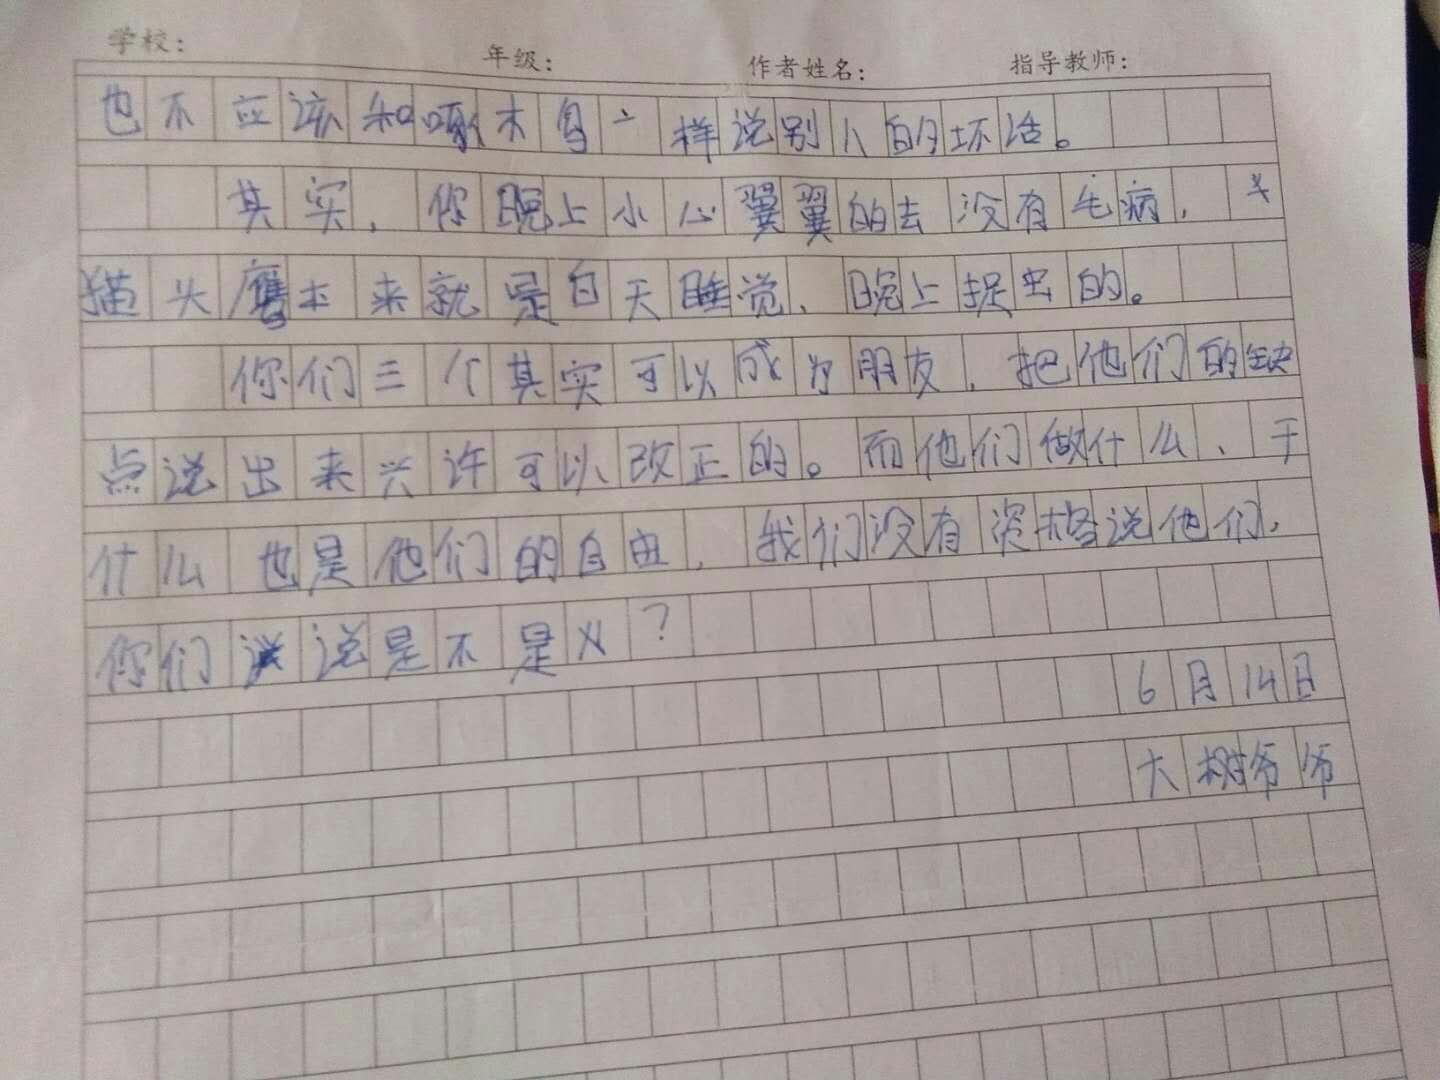 学校： 年级： 作者姓名： 指导教师：
也不应该和啄木鸟一样说别人的坏话。
其实，你晚上小心翼翼的去没有毛病，
猫头鹰本来就是白天睡觉、晚上捉虫的。
你们三个其实可以成为朋友，把他们的缺
点说出来兴许可以改正的。而他们做什么、干
什么也是他们的自由，我们没有资格说他们，
你们说说是不是
6月14日
大树爷爷